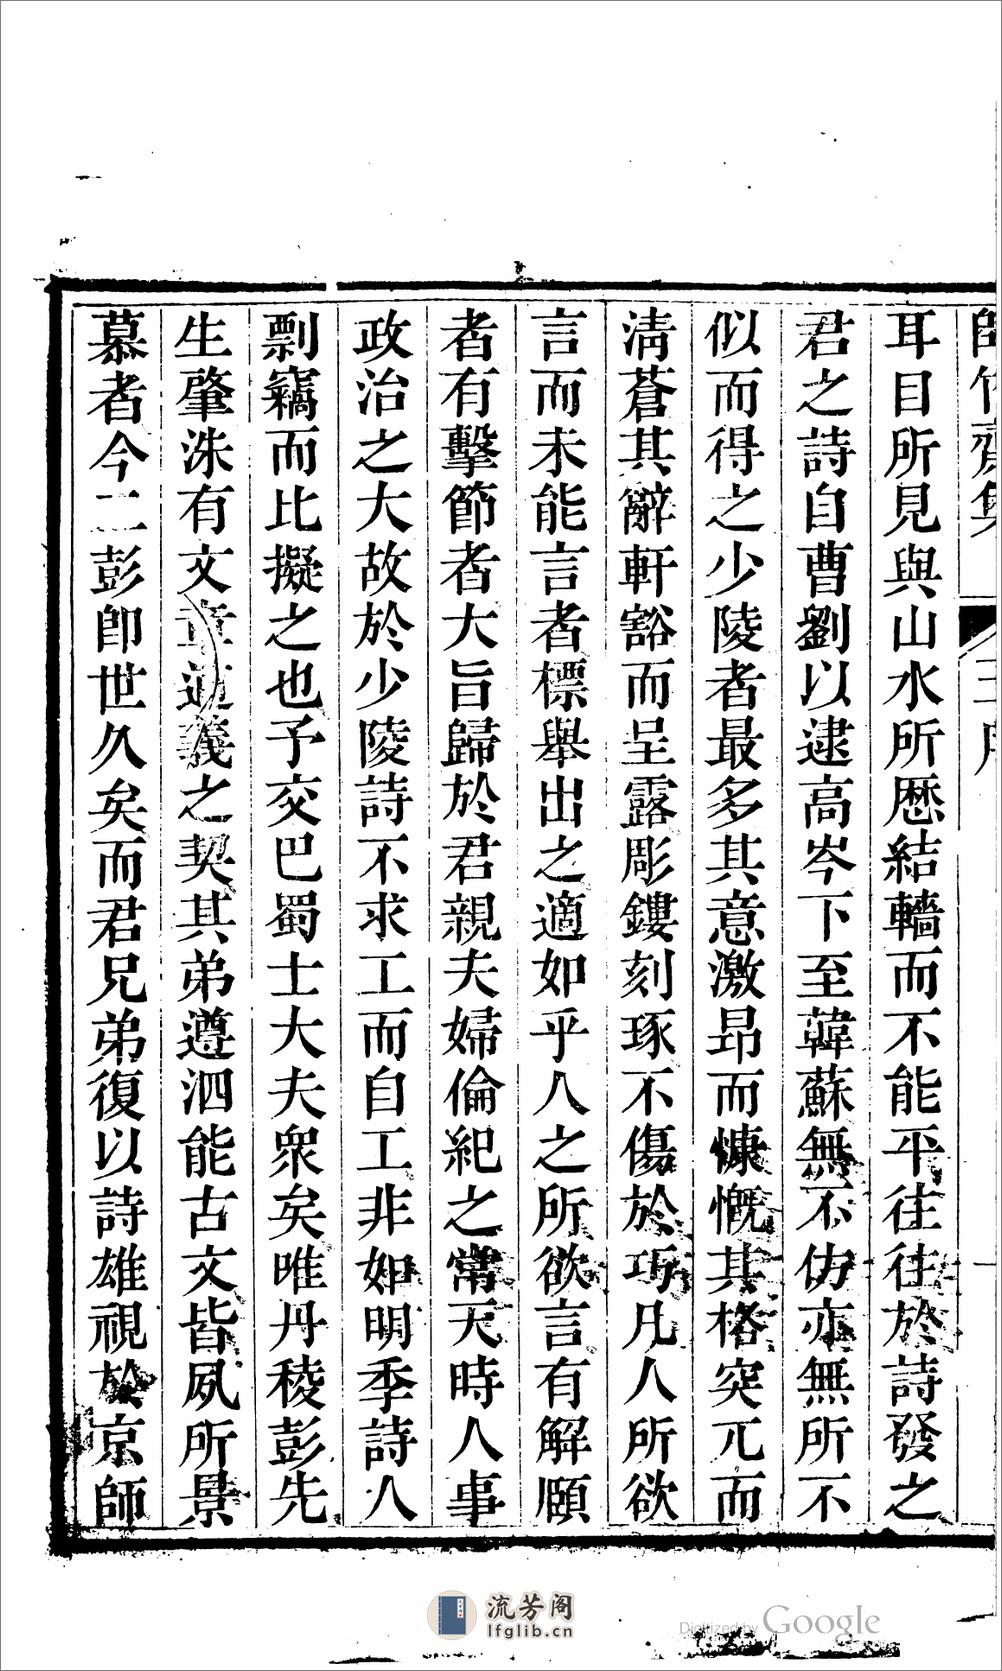 耳目所見與山水所歷結轖而不能平往往於詩發之
君之詩自曹劉以逮高岑下至韓蘇無不仿亦無所不
似而得之少陵者最多其意激昂而慷慨其格突兀而
淸蒼其辭軒豁而呈露彫鏤刻琢不傷於巧凡人所欲
言而未能言者標舉出之適如乎人之所欲言有解頤
者有擊節者大旨歸於君親夫婦倫紀之常天時人事
政治之大故於少陵詩不求工而自工非如明季詩人
剽竊而比擬之也予交巴蜀士大夫衆矣唯丹稜彭先
生肇洙有文章道義之契其弟遵泗能古文皆夙所景
慕者今二彭卽世久矣而君兄弟復以詩雄視於京師
流芳阁
lfglib.cn
Digitized by Google